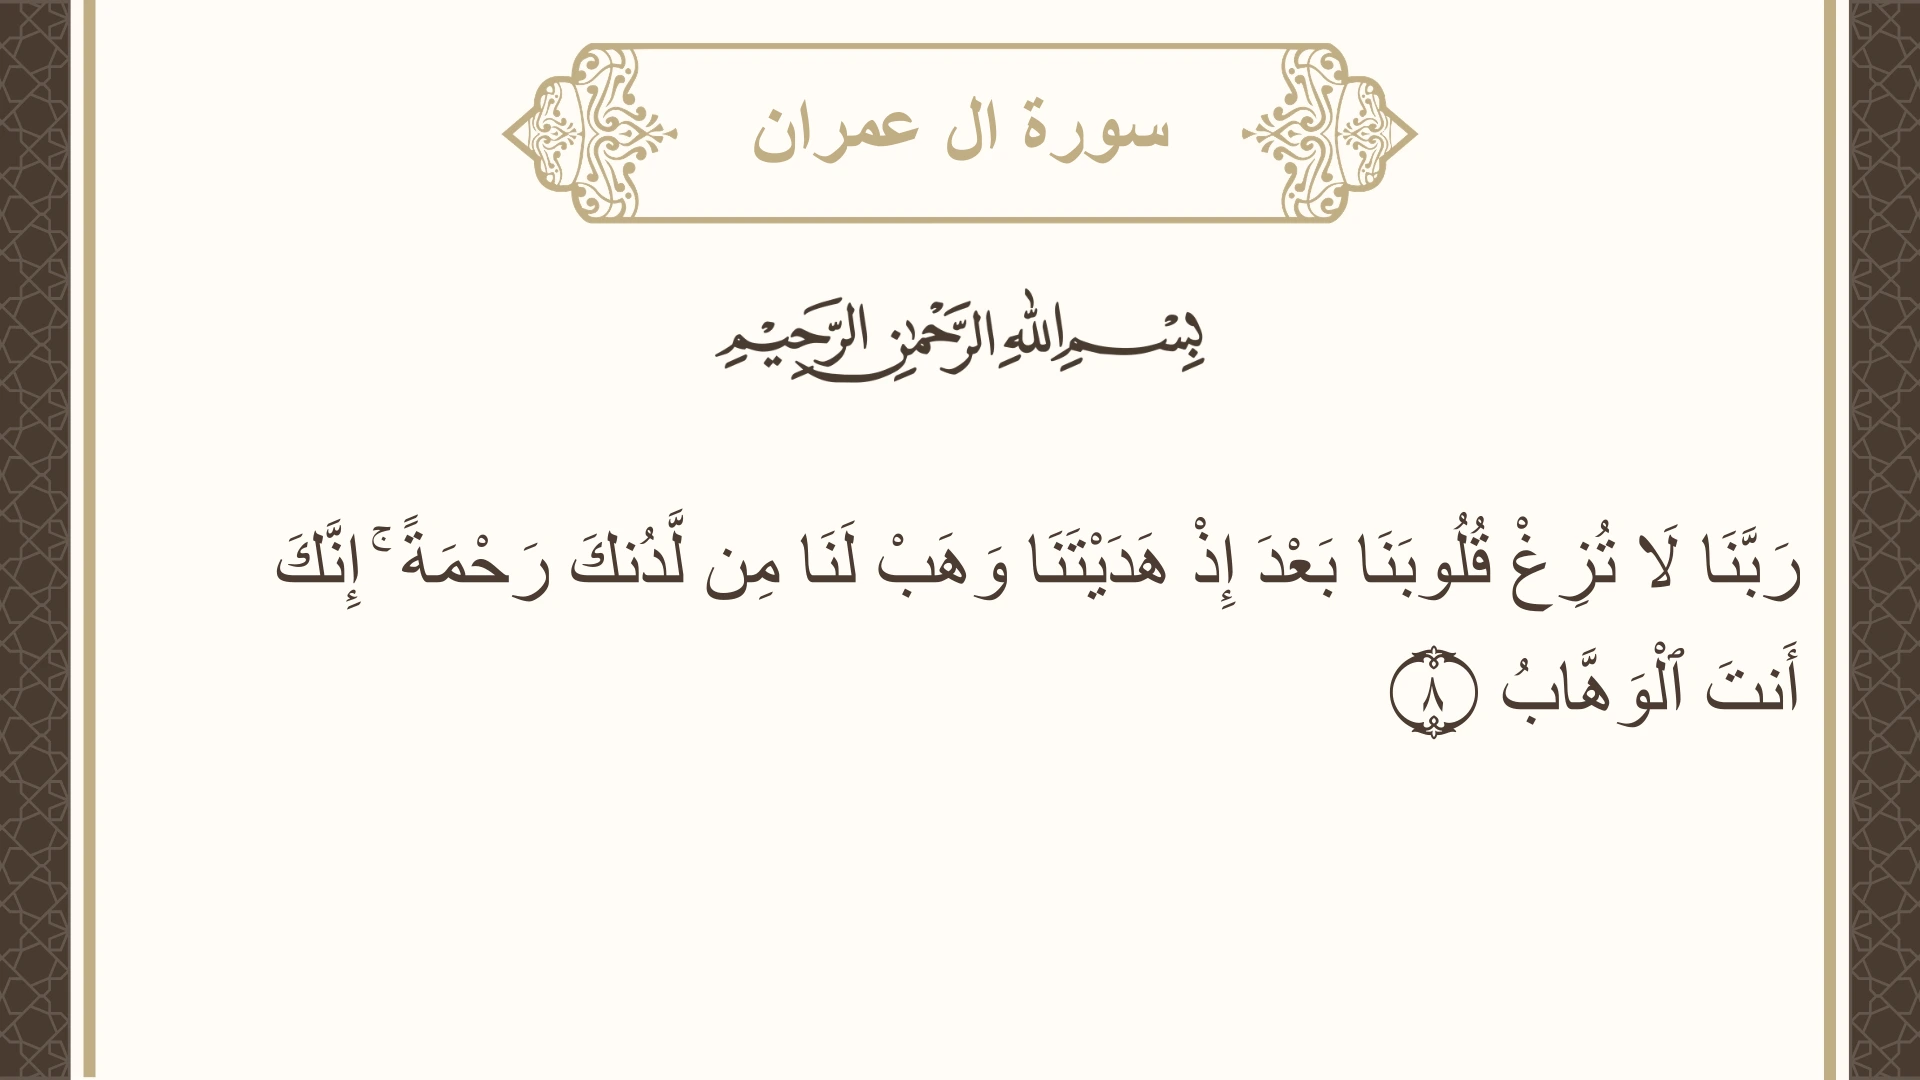 سورة ال عمران
بِسْمِ اللهِ الرَّحْمٰنِ الرَّحِيْمِ
رَبَّنَا لَا تُزِغْ قُلُوبَنَا بَعْدَ إِذْ هَدَيْتَنَا وَهَبْ لَنَا مِن لَّدُنكَ رَحْمَةً ۚ إِنَّكَ
أَنتَ ٱلْوَهَّابُ ۝٨